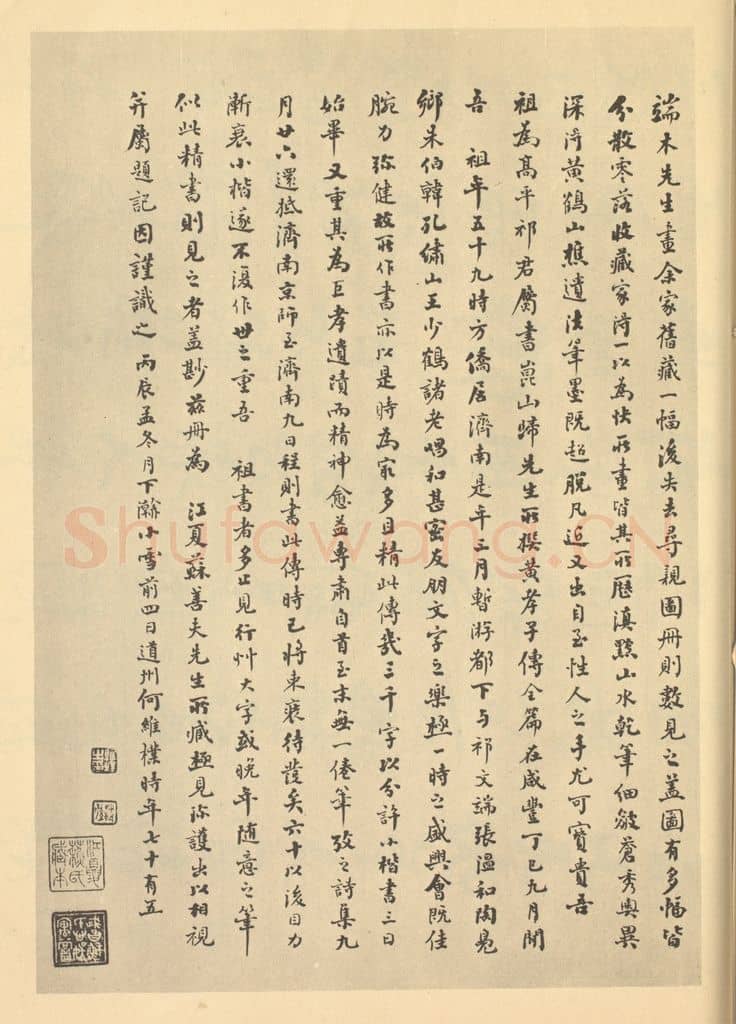 端木先生畫余家舊藏一幅後失去尋親圖冊則數見之蓋圖有多幅皆
分散零落收藏家得一以為快所畫皆其所歷滇黔山水乾筆細皴蒼秀奧異
深得黃鶴山樵遺法筆墨既超脫凡近又出自至性人之手尤可寶貴吾
祖為高平祁君屬書崑山歸先生所撰黃孝子傳全篇在咸豐丁巳九月間
吾 祖年五十九時方僑居濟南是年三月暫游都下與祁文端張溫和陶鳧
鄉朱伯韓孔繡山王少鶴諸老唱和甚密友朋文字之樂極一時之盛興會既佳
腕力彌健故所作書亦以是時為最多且精此傳幾三千字以分許小楷書三日
始畢又重其為巨孝遺蹟而精神愈益專肅自首至末無一倦筆攷之詩集九
月廿六還抵濟南京師至濟南九日程則書此傳時已將束裝待發矣六十以後目力
漸衰小楷遂不復作世之重吾 祖書者多止見行艸大字或晚年隨意之筆
似此精書則見之者蓋尠茲冊為 江夏蘇善夫先生所臧極見珍護出以相視
并屬題記因謹識之 丙辰孟冬月下澣小雪前四日道州何維樸時年七十有五
Shufawang.CN